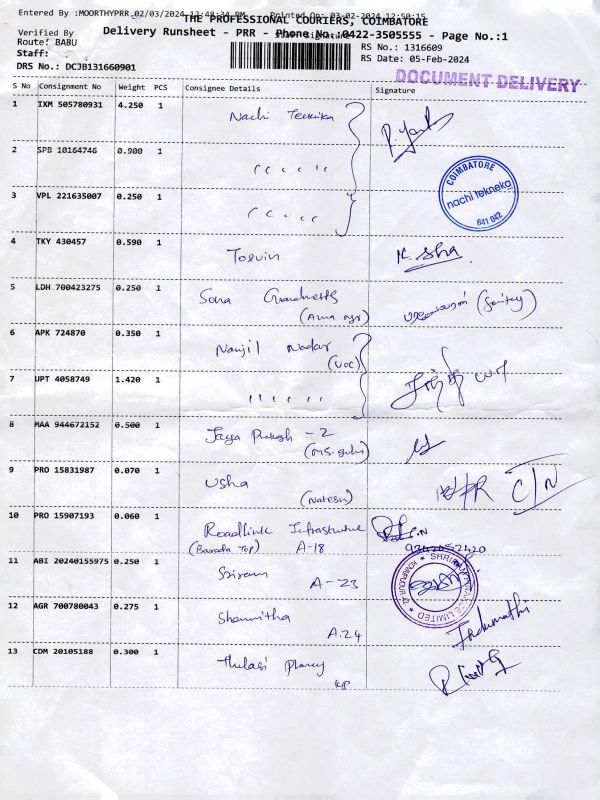 Entered By :MOORTHYPRR 02/03/2024 12:48:34 PM Printed On: 03-02-2024 12:50:15
THE PROFESSIONAL COURIERS, COIMBATORE
Verified By
Delivery Runsheet - PRR - Phone No :0422-3505555 - Page No.:1
Route: BABU
RS No.: 1316609
Staff:
RS Date: 05-Feb-2024
DRS No.: DCJB131660901
DOCUMENT DELIVERY
S No Consignment No Weight PCS Consignee Details Signature
1 IXM 505780931 4.250 1 Nachi Teknika
2 SPB 10164746 0.900 1 " "
COIMBATORE
nachi tekneka
641 042
3 VPL 221635007 0.250 1 " "
4 TKY 430457 0.590 1
5 LDH 700423275 0.250 1 Sona
6 APK 724870 0.350 1 Nanjil Nadar
(VOC)
7 UPT 4058749 1.420 1 " "
8 MAA 944672152 0.500 1 Jaya Prakash - 2
9 PRO 15831987 0.070 1 Usha C/N
(Natesn)
10 PRO 15907193 0.060 1 Roadlink Infrastructure
(Baroda Top) A-18
11 ABI 20240155975 0.250 1 Sriram
A-23
12 AGR 700780043 0.275 1 Shanmitha Indumathi
A.24
13 CDM 20105188 0.300 1 Thulasi
KP